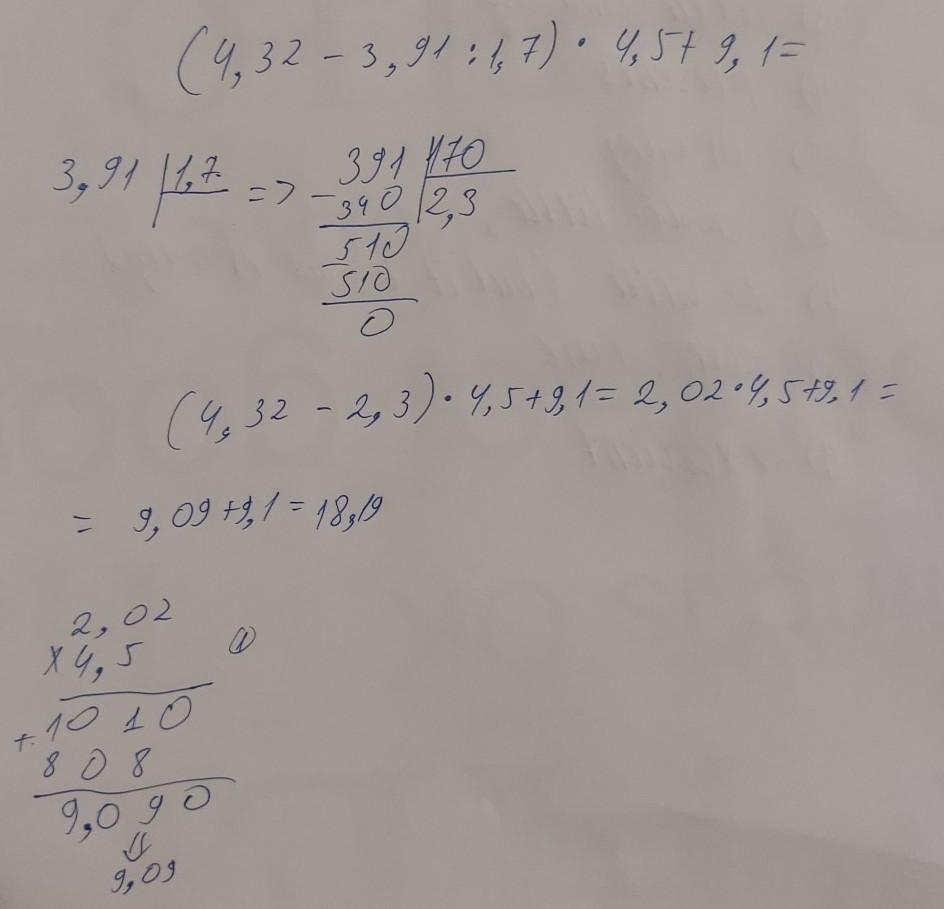 (4,32 - 3,91 : 1,7) · 4,5 + 9,1 =
3,91 | 1,7 => 391 | 170
- 340 | 2,3
- 510
510
0
(4,32 - 2,3) · 4,5 + 9,1 = 2,02 · 4,5 + 9,1 =
= 9,09 + 9,1 = 18,19
2,02
x 4,5 ①
1010
+ 808
9,090
⇓
9,09